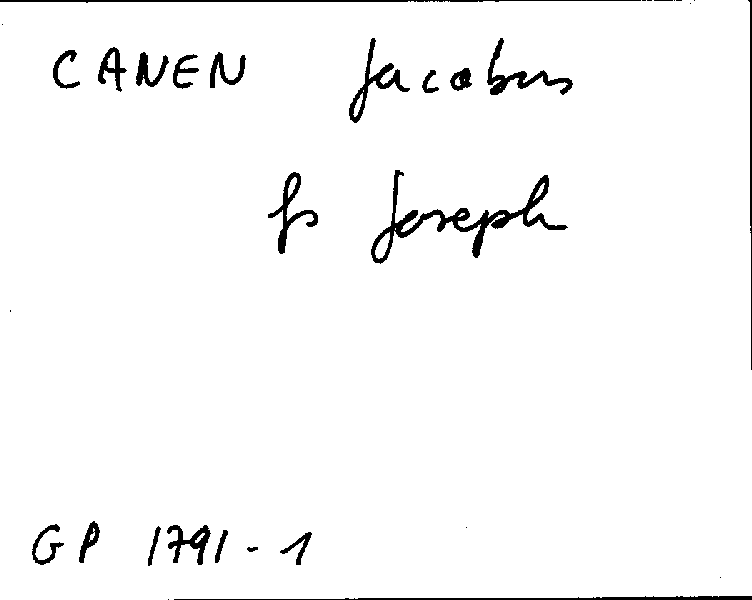 CANEN Jacobus
fs Joseph
GP 1791-1